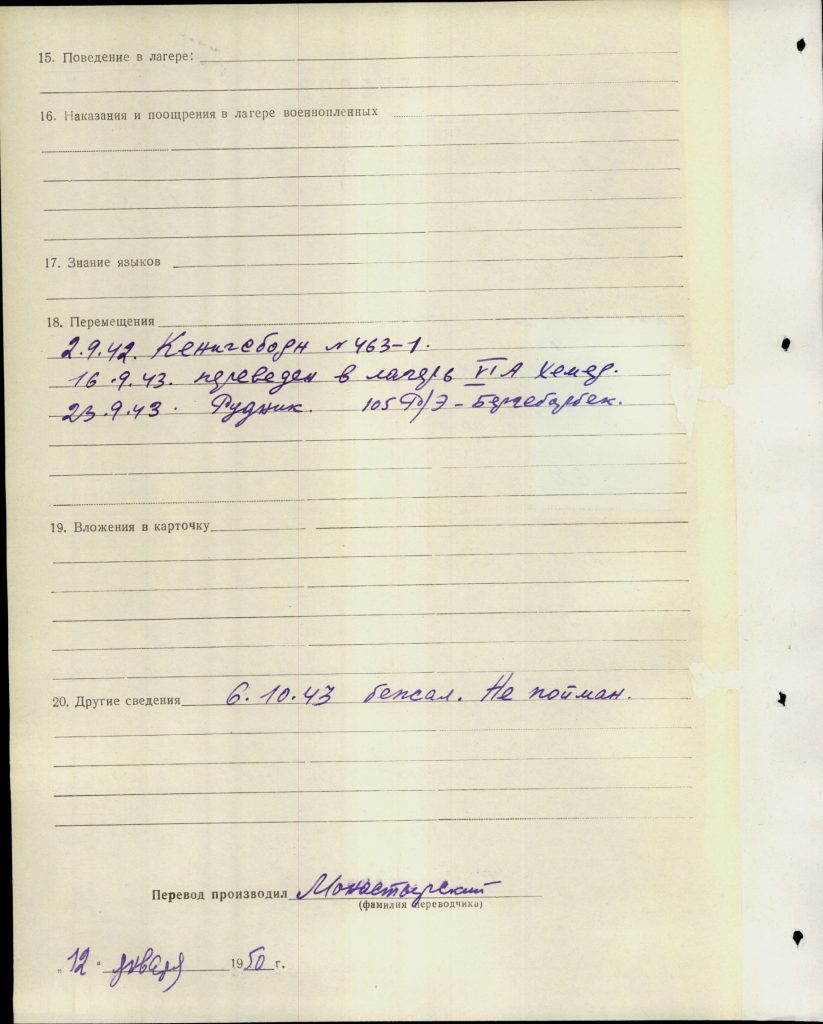 15. Поведение в лагере:
16. Наказания и поощрения в лагере военнопленных
17. Знание языков
18. Перемещения
2.9.42. Кенигсборн № 463-1.
16.9.43. переведен в лагерь VI А Хемер.
23.9.43. Рудник. 105 Э - Бергеборбек.
19. Вложения в карточку
20. Другие сведения 6.10.43 бежал. Не пойман.
Перевод производил Монастырский
(фамилия переводчика)
„12" января 1950 г.